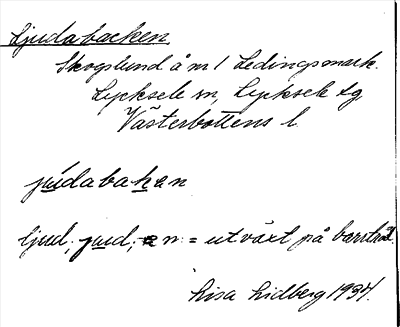 Ljudabacken
Skogslund å nr 1 Ledingsmark.
Lycksele sn, Lycksele lg
Västerbottens l.
júdabakan
ljud, jud, n = utväxt på barrträd.
Lisa Lidberg 1937.